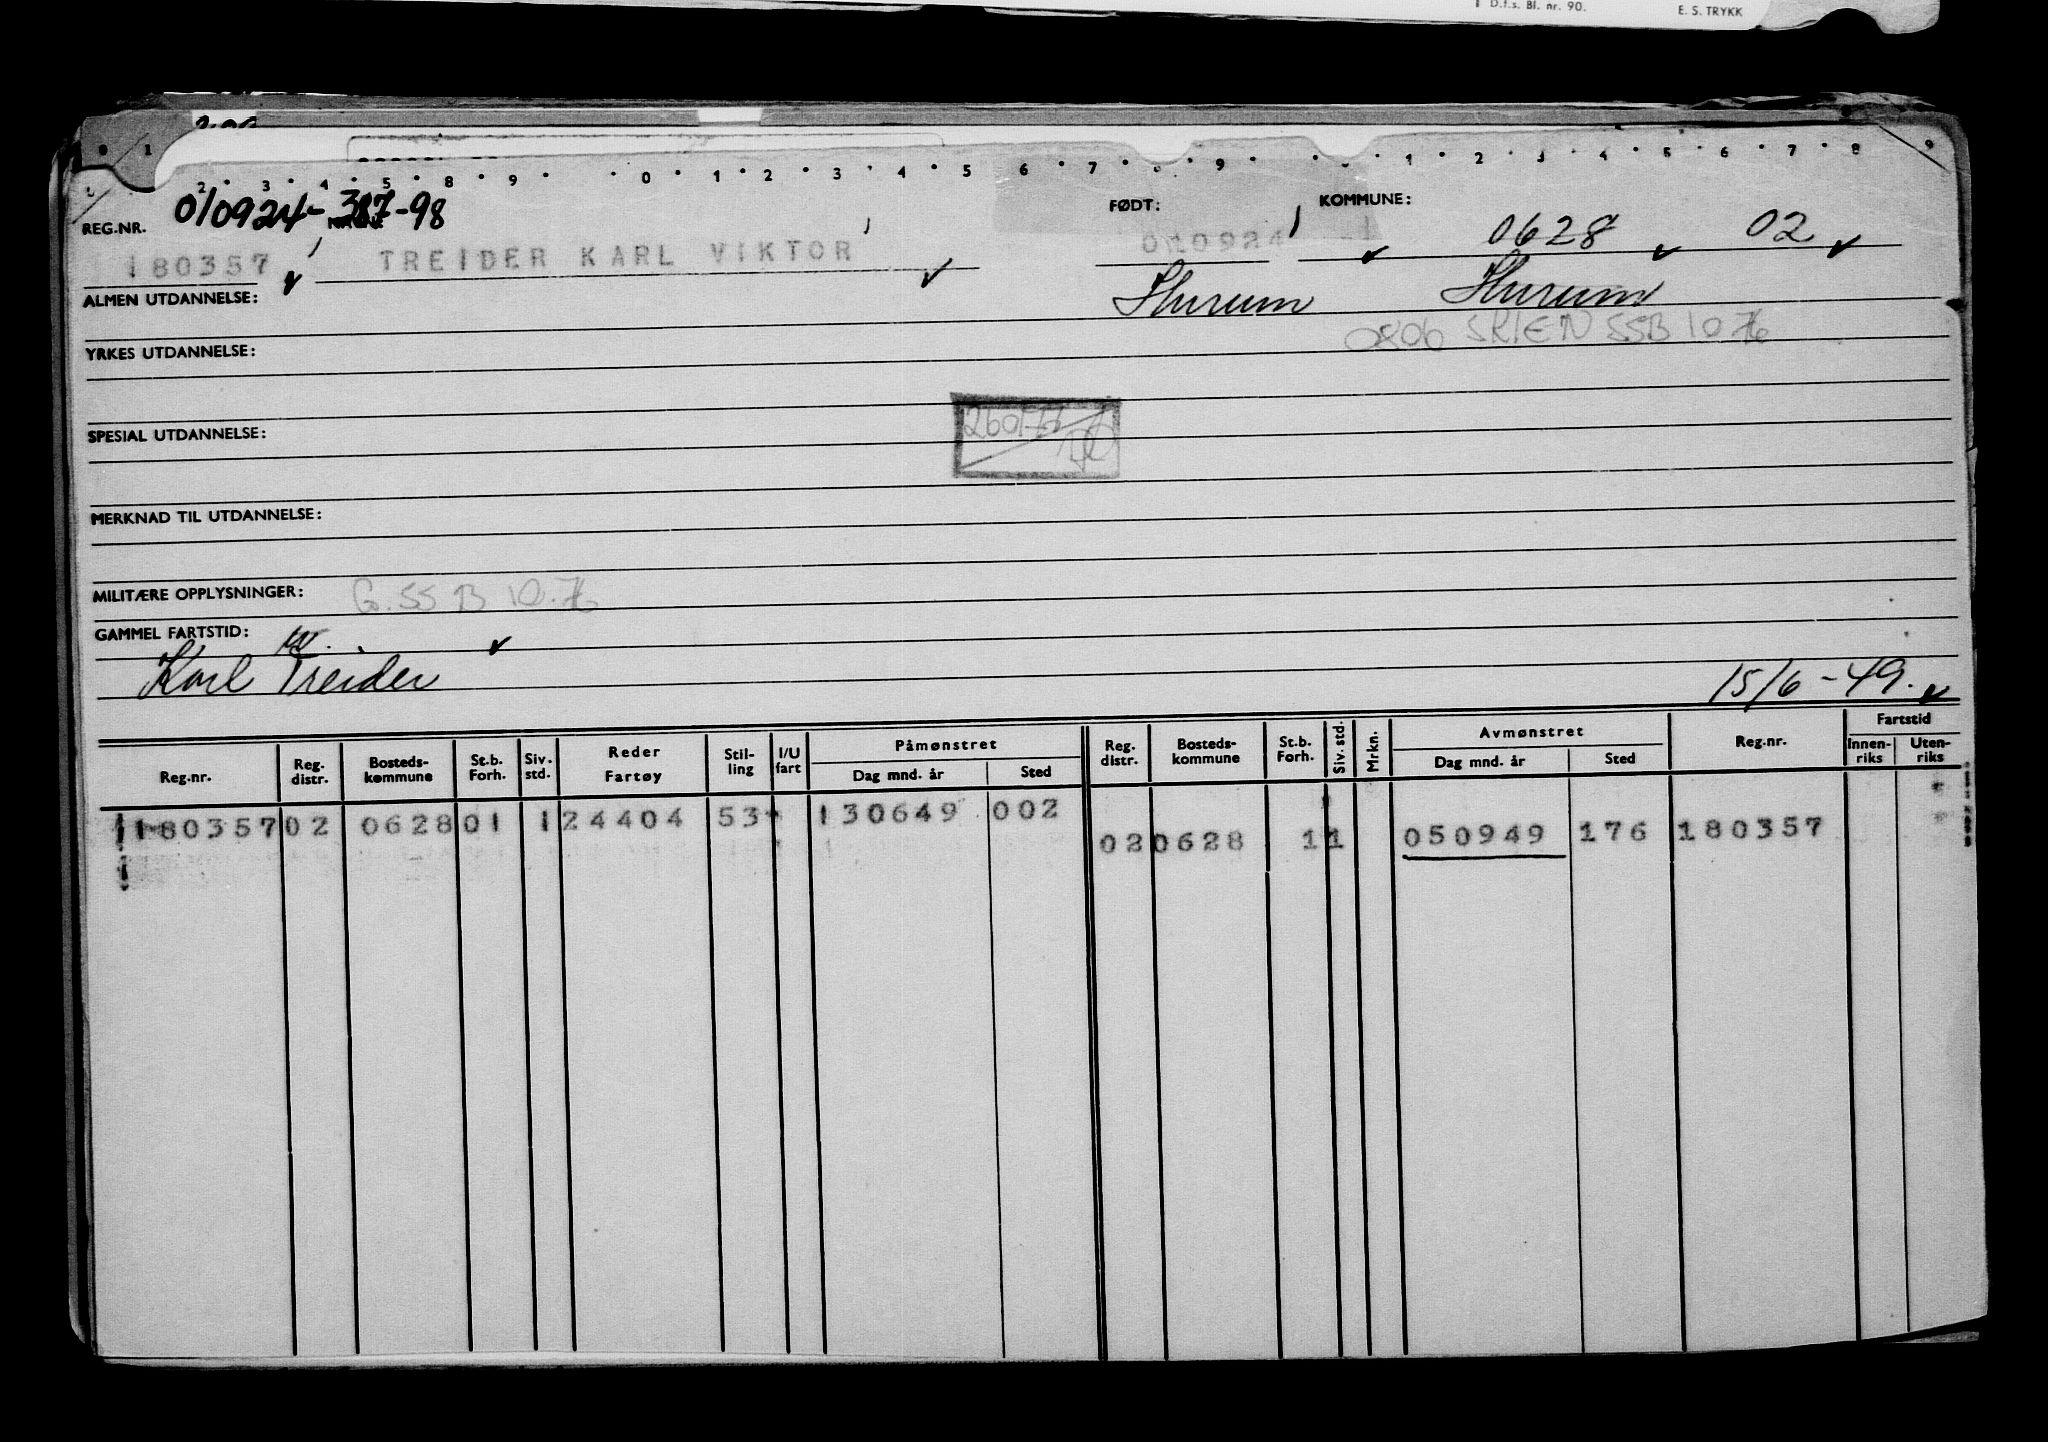 D.f.s. Bl. nr. 90. E. S. TRYKK
0 1
2 3 4 5 8 9 0 1 2 3 4 5 6 7 9 1 2 3 4 5 6 7 8 9
010924-387-98
REG.NR. FØDT: KOMMUNE:
180357 TREIDER KARL VIKTOR 010924 0628 02
ALMEN UTDANNELSE: Hurum Hurum
0806 SKIEN SSB 10 76
YRKES UTDANNELSE:
SPESIAL UTDANNELSE:
MERKNAD TIL UTDANNELSE:
MILITÆRE OPPLYSNINGER: G. SS B 10.76
GAMMEL FARTSTID:
Karl Treider 15/6-49.
Reg.nr. Reg. distr. Bosteds-kommune St.b. Forh. Siv. std. Reder Fartøy Stil-ling I/U fart Påmønstret Dag mnd. år Sted Reg. distr. Bosteds-kommune St.b. Forh. Siv. std. Mrkn. Avmønstret Dag mnd. år Sted Reg.nr. Fartstid Innen-riks Uten-riks
180357 02 0628 01 1 24404 53 130649 002
02 0628 1 1 050949 176 180357